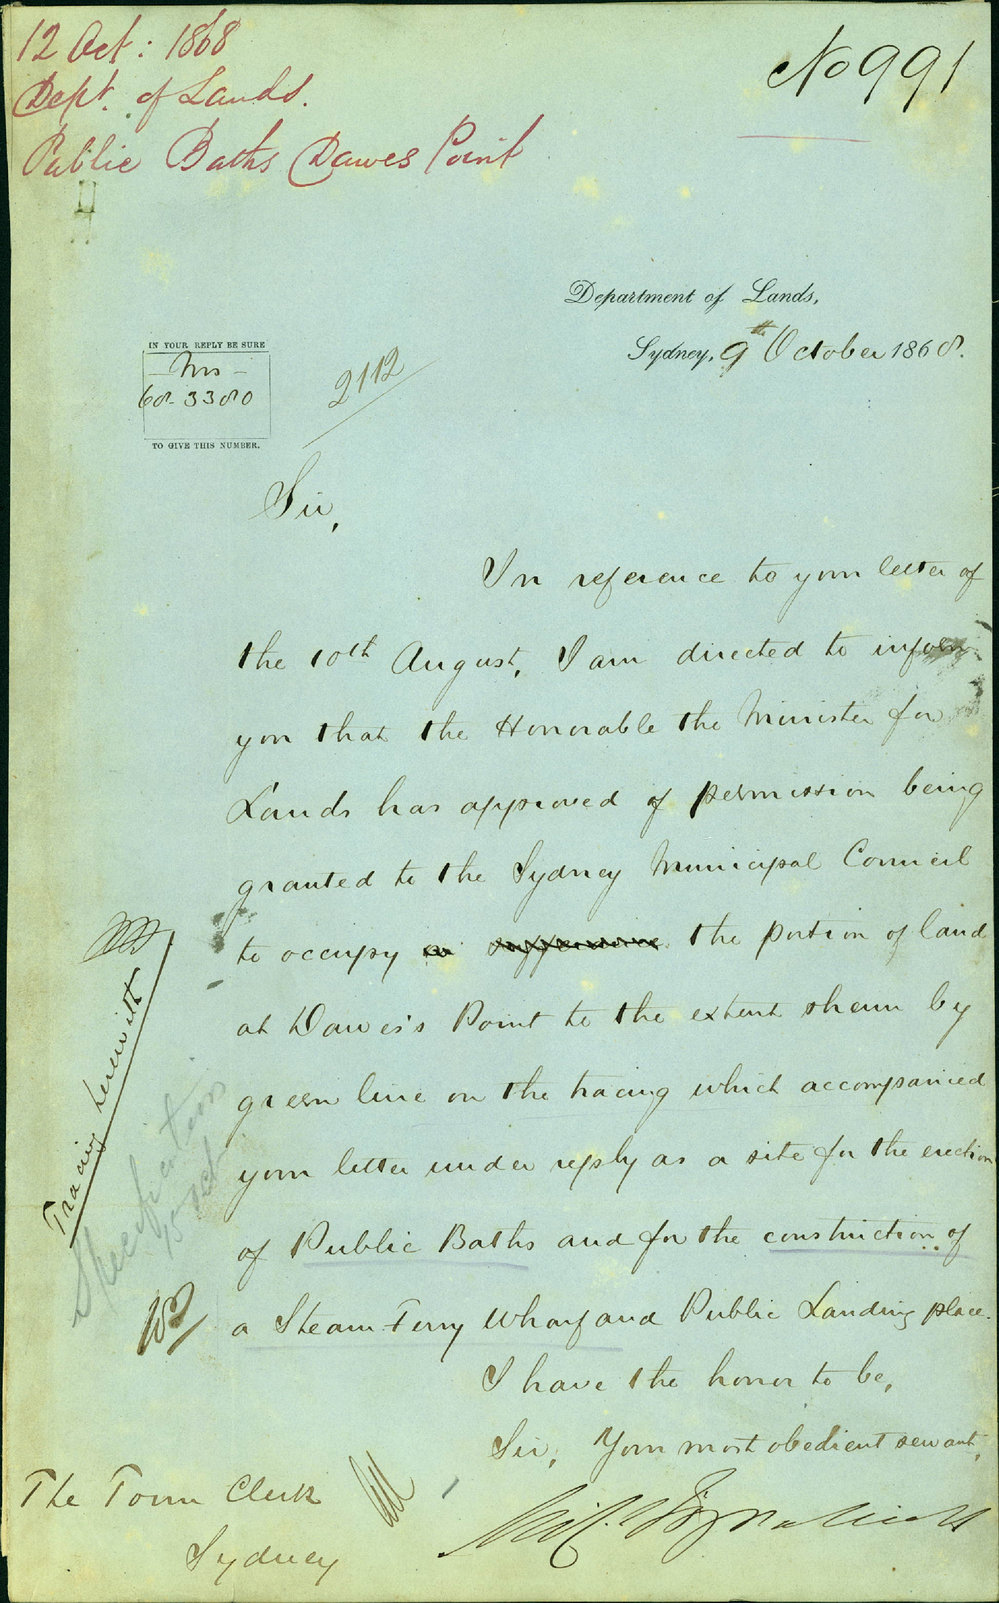 12 Oct: 1868
Dept. of Lands.
Public Baths Dawes Point
No 991
Department of Lands,
Sydney, 9th October 1868.
IN YOUR REPLY BE SURE
Mis
68-3380
TO GIVE THIS NUMBER.
2112
Sir,
In reference to your letter of
the 10th August, I am directed to inform
you that the Honorable the Minister for
Lands has approved of permission being
granted to the Sydney Municipal Council
to occupy the portion of land
at Dawes's Point to the extent shewn by
green line on the tracing which accompanied
your letter under reply as a site for the erection
of Public Baths and for the construction of
a Steam Ferry Wharf and Public Landing place.
Tracing herewith
Specifications
15 Oct
I have the honor to be,
Sir, Your most obedient servant,
The Town Clerk
Sydney